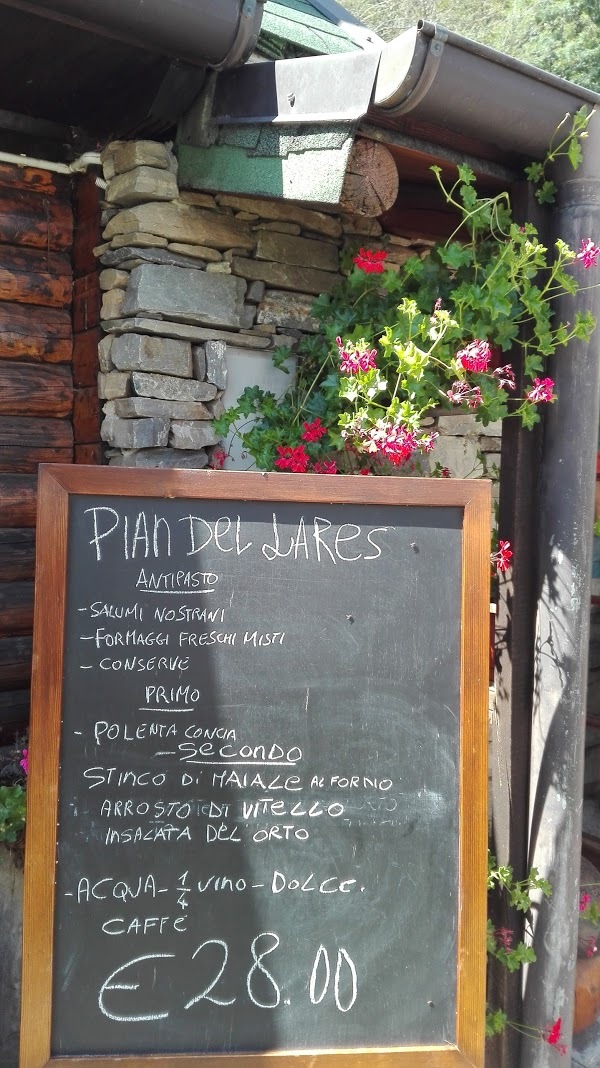 PIAN DEL LARES
ANTIPASTO
- SALUMI NOSTRANI
- FORMAGGI FRESCHI MISTI
- CONSERVE
PRIMO
- POLENTA CONCIA
- SECONDO
STINCO DI MAIALE AL FORNO
ARROSTO DI VITELLO
INSALATA DEL'ORTO
- ACQUA - 1/4 VINO - DOLCE.
CAFFÈ
€ 28.00